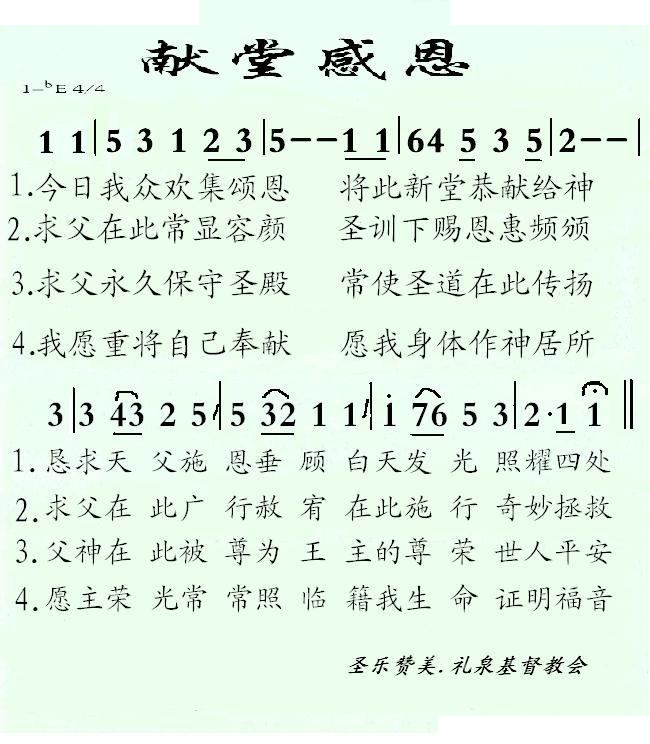 献堂感恩
1=ᵇE 4/4
1 1|5 3 1 2 3|5--1 1|64 5 3 5|2--|
1.今日我众欢集颂恩 将此新堂恭献给神
2.求父在此常显容颜 圣训下赐恩惠频颁
3.求父永久保守圣殿 常使圣道在此传扬
4.我愿重将自己奉献 愿我身体作神居所
3|3 43 2 5|5 32 1 1|i 76 5 3|2·1 1‖
1.恳求天 父施 恩垂 顾 白天发 光 照耀四处
2.求父在 此广 行赦 宥 在此施 行 奇妙拯救
3.父神在 此被 尊为 王 主的尊 荣 世人平安
4.愿主荣 光常 常照 临 籍我生 命 证明福音
圣乐赞美.礼泉基督教会